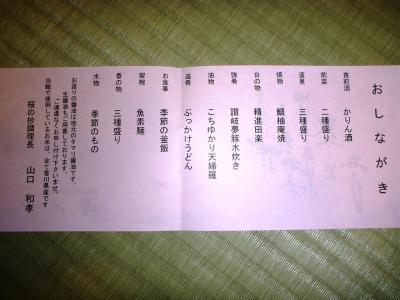 おしながき
食前酒 かりん酒
前菜 二種盛り
造里 三種盛り
焼物 鯛柚庵焼
台の物 精進田楽
強肴 讃岐夢豚水炊き
油物 こちゆかり天婦羅
追肴 ぶっかけうどん
お食事 季節の釜飯
留椀 魚素麺
香の物 三種盛り
水物 季節のもの
お造りの醤油は地元のタマリ醤油です。
生醤油もご用意しております。
ご遠慮なくお申し付け下さいませ。
当館で使用しているお米は、全て香川県産です
桜の抄調理長 山口 和孝